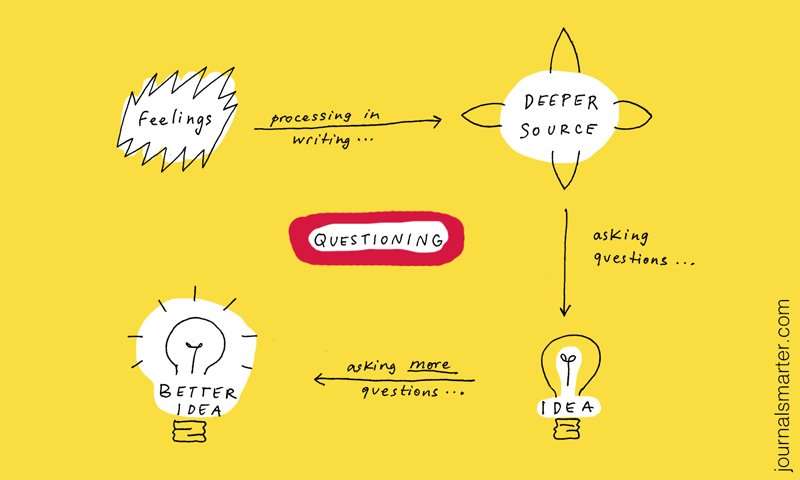 Feelings
processing in
writing...
DEEPER
SOURCE
QUESTIONING
asking
questions...
BETTER
IDEA
asking more
questions...
IDEA
journalsmarter.com